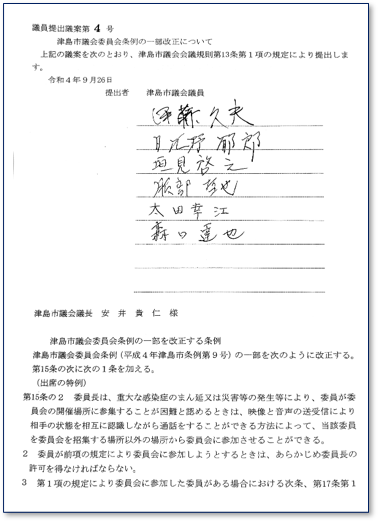 議員提出議案第 4 号
津島市議会委員会条例の一部改正について
上記の議案を次のとおり、津島市議会会議規則第13条第1項の規定により提出しま
す。
令和4年9月26日
提出者 津島市議会議員
伊藤久夫
日比野郁郎
垣見啓之
服部哲也
太田幸江
森口達也
津島市議会議長 安 井 貴 仁 様
津島市議会委員会条例の一部を改正する条例
津島市議会委員会条例(平成4年津島市条例第9号)の一部を次のように改正する。
第15条の次に次の1条を加える。
(出席の特例)
第15条の2 委員長は、重大な感染症のまん延又は災害等の発生等により、委員が委
員会の開催場所に参集することが困難と認めるときは、映像と音声の送受信により
相手の状態を相互に認識しながら通話をすることができる方法によって、当該委員
を委員会を招集する場所以外の場所から委員会に参加させることができる。
2 委員が前項の規定により委員会に参加しようとするときは、あらかじめ委員長の
許可を得なければならない。
3 第1項の規定により委員会に参加した委員がある場合における次条、第17条第1